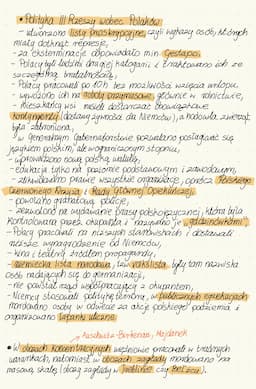 • Polityka III Rzeszy wobec Polaków
- utworzono listy proskrypcyjne, czyli wykazy osób, których
miały dotknąć represje,
- za eksterminację odpowiadało min. Gestapo,
- Polacy byli ludźmi drugiej kategorii i traktowano ich ze
szczególną brutalnością,
- Polacy pracowali po 10h bez możliwości wzięcia urlopu
- wywożono ich na roboty przymusowe, głównie w rolnictwie,
- mieszkańcy wsi musieli dostarczać obowiązkowe
kontyngenty (dostawy żywności dla Niemców), a hodowla zwierząt
była zabroniona,
- w Generalnym Gubernatorstwie pozwalano posługiwać się
językiem polskim, ale w ograniczonym stopniu,
- wprowadzono nową polską walutę,
- edukacja tylko na poziomie podstawowym i zawodowym,
- zlikwidowano prawie wszystkie organizacje, oprócz Polskiego
Czerwonego Krzyża i Rady Głównej Opiekuńczej,
- powołano granatową policję,
- zezwolono na wydawanie prasy polskojęzycznej, która była
kontrolowana przez okupanta i nazywano je "gadzinówkami",
- Polacy pracowali na niższych stanowiskach i dostawali
niższe wynagrodzenie od Niemców,
- kina i teatry źródłem propagandy,
- niemiecka lista narodowa, tzw. volkslista, były tam nazwiska
osób nadających się do germanizacji,
- nie powstał rząd współpracujący z okupantem,
- Niemcy stosowali politykę terroru, w publicznych egzekucjach
mordowano osoby w odwecie za akcje polskiego podziemia i
organizowano łapanki uliczne.
Auschwitz-Birkenau, Majdanek
• W obozach koncentracyjnych więźniowie pracowali w trudnych
warunkach, natomiast w obozach zagłady mordowano na
masową skalę (obozy zagłady w Treblince czy Bełżcu).